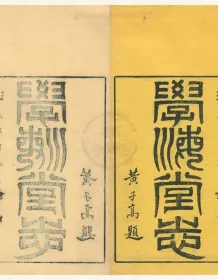 學海堂志
黃子高題
黃子高題
學海堂志